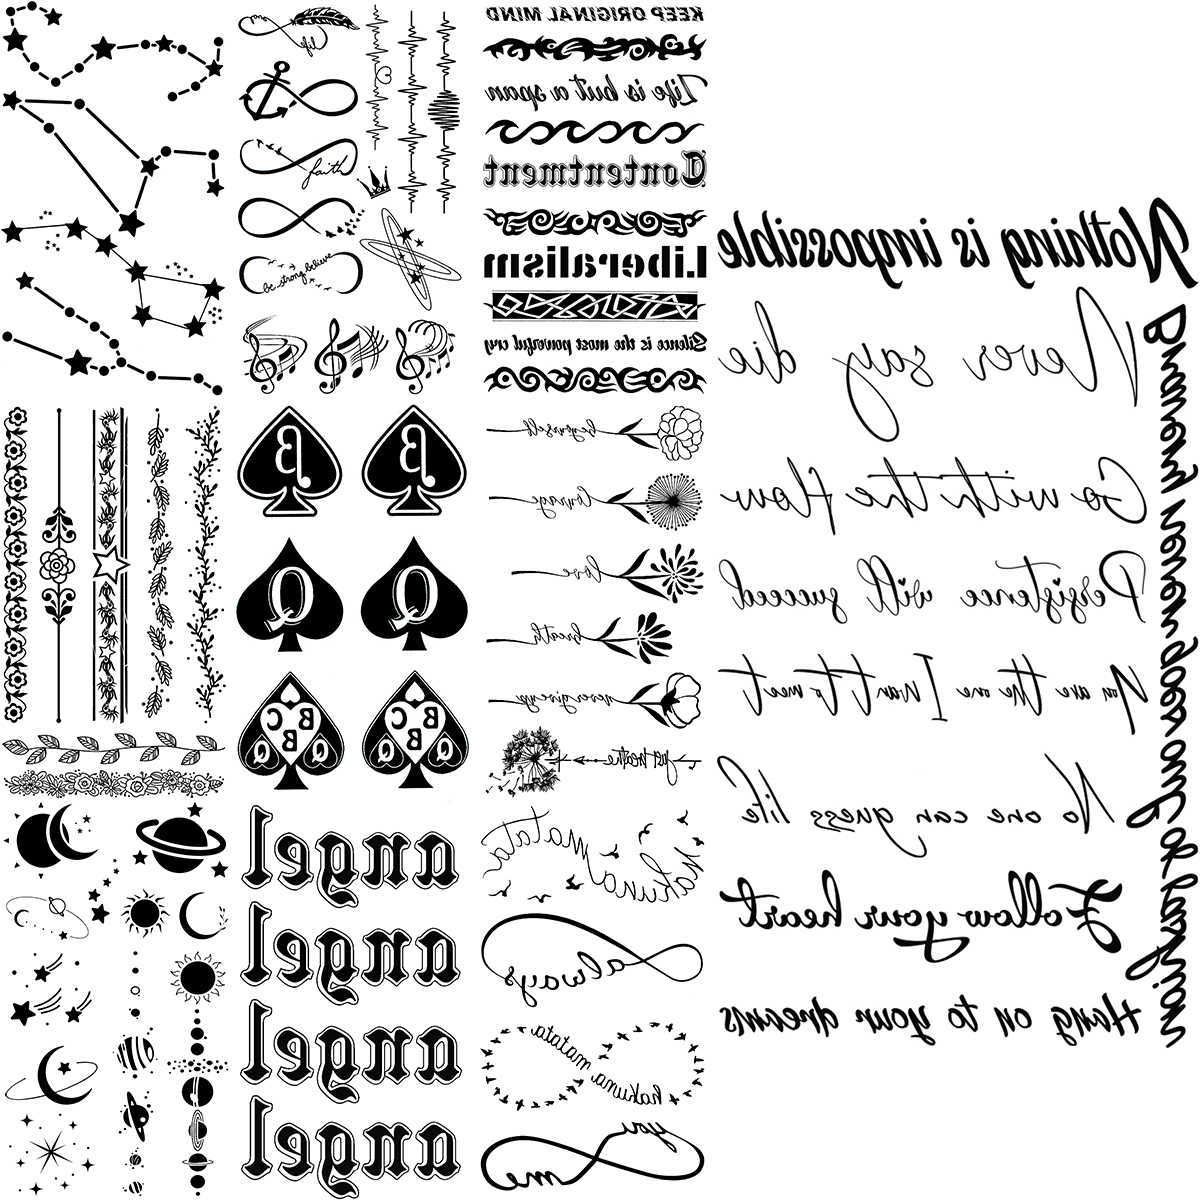 life
faith
be strong believe
KEEP ORIGINAL MIND
Life is but a span
Contentment
Liberalism
Silence is the most powerful cry
be yourself
courage
love
breath
never give up
just breathe
hakuna matata
always
hakuna matata
you
me
B
B
Q
Q
B C
B
Q Q
B C
B
Q Q
angel
angel
angel
angel
Nothing is impossible
Never say die
Go with the flow
Persistence will succeed
You are the one I want to meet
No one can guess life
Follow your heart
Hang on to your dreams